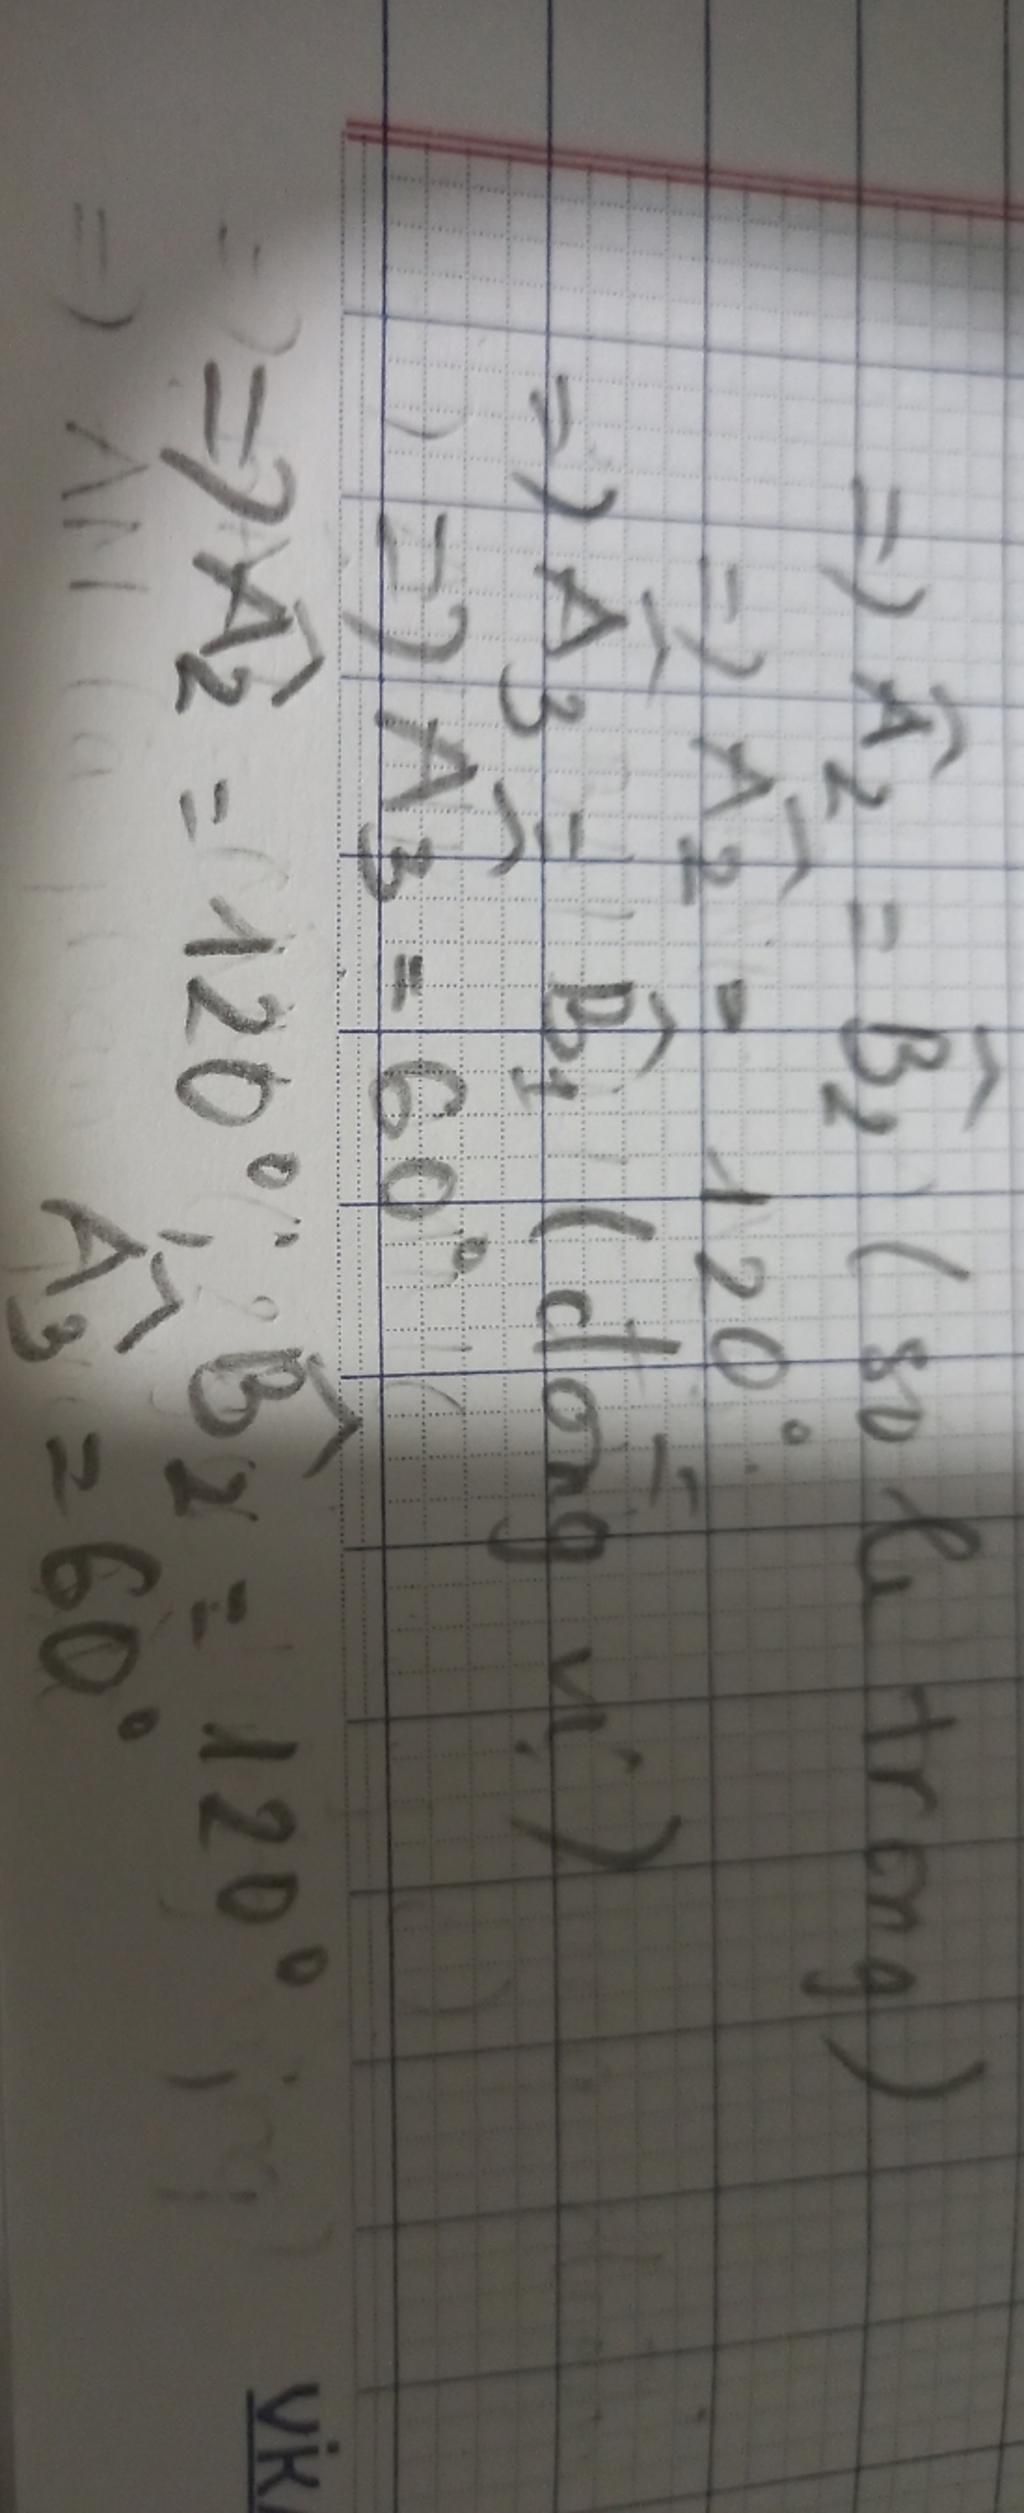 =) Â2 = B̂2 (so le trong)
=) Â2 = 120°
=) Â3 = B̂1 (đồng vị)
=) Â3 = 60°
=) Â2 = 120°, B̂2 = 120°
Â3 = 60°